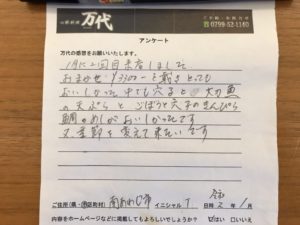 万代
ご予約・お問合せ
0799-52-1160
アンケート
万代の感想をお願いいたします。
1月に2回目来店しました
おまかせ ¥3300-を戴きとても
おいしかった 中でも穴子と 太刀魚
の天ぷらと ごぼうと穴子のきんぴら
鯛のめしがおいしかったです
又、季節を変えて来たいです
ご住所(県・市区町村) 南あわじ市 イニシャル T. 日時 令和2年/1月
内容をホームページなどに掲載してもよろしいでしょうか? はい □いいえ